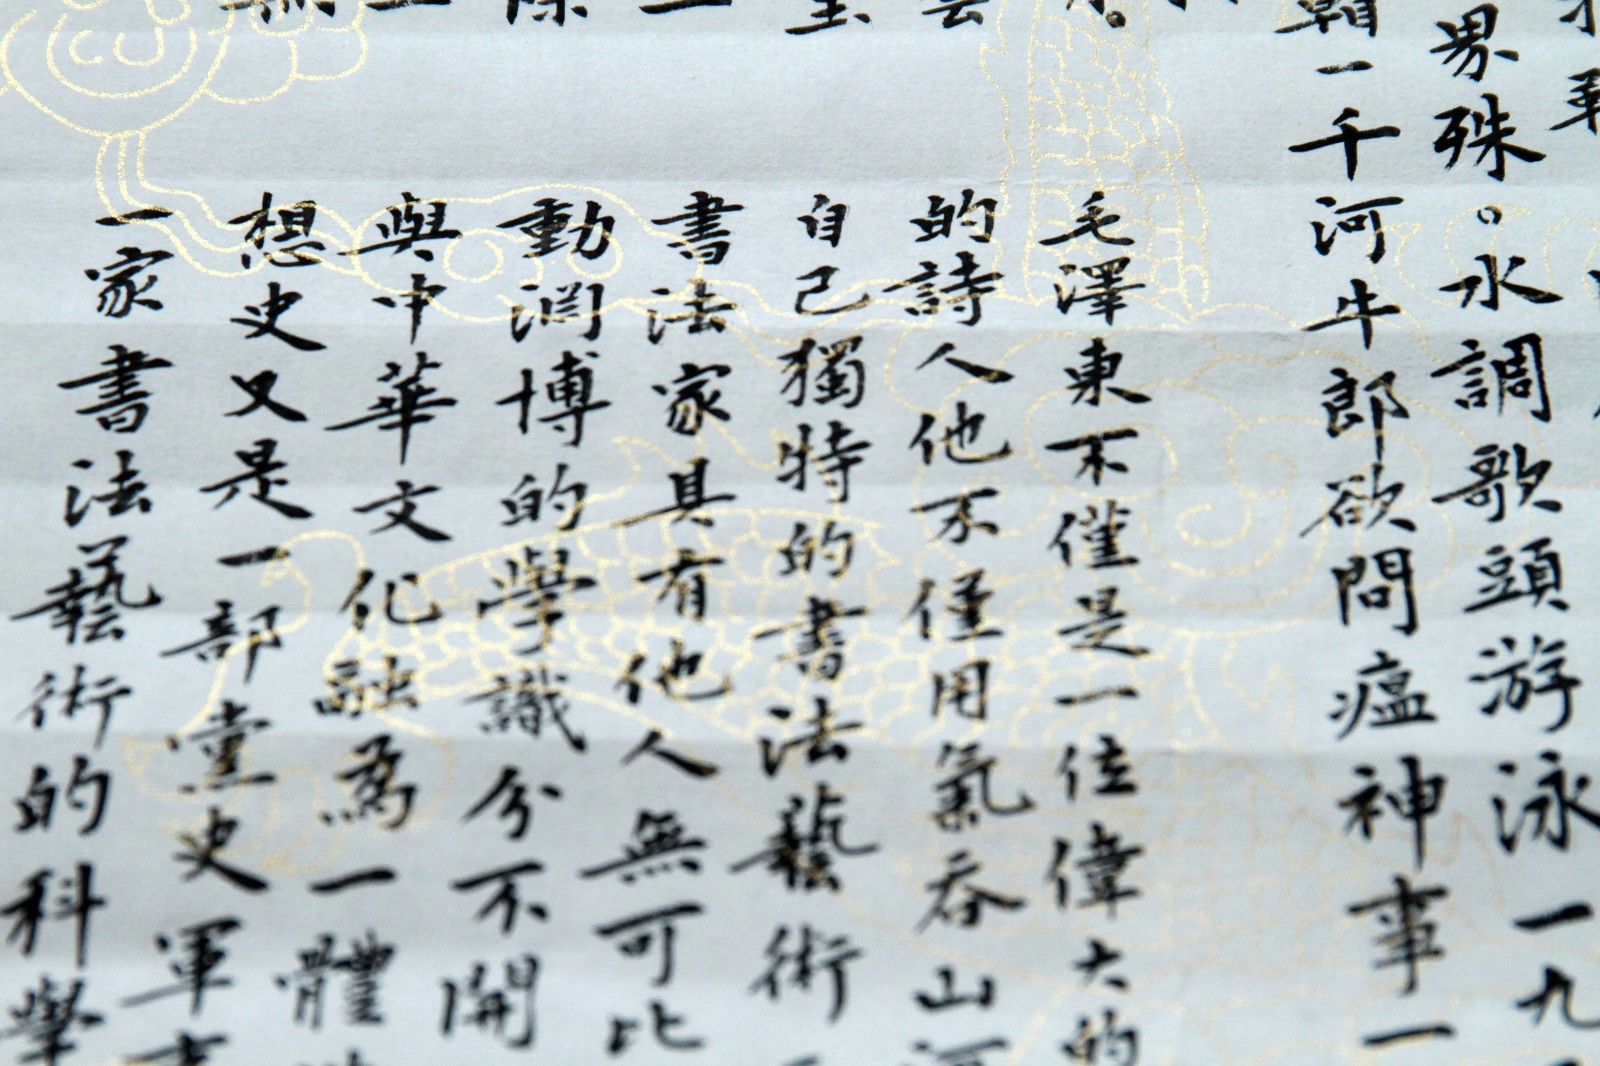 軍
界殊。水調歌頭游泳一九
一千河牛郎欲問瘟神事一
毛澤東不僅是一位偉大的
的詩人他不僅用氣吞山河
自己獨特的書法藝術
書法家具有他人無可比
動淵博的學識分不開
與中華文化融爲一體
想史又是一部黨史軍
一家書法藝術的科學